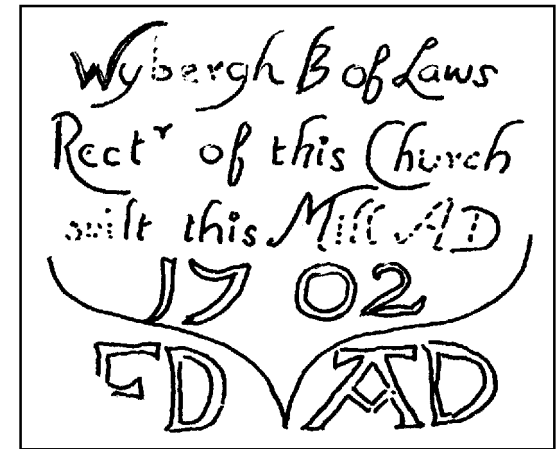 Wybergh B of Laws
Rectr of this Church
built this Mill AD
1702
AD